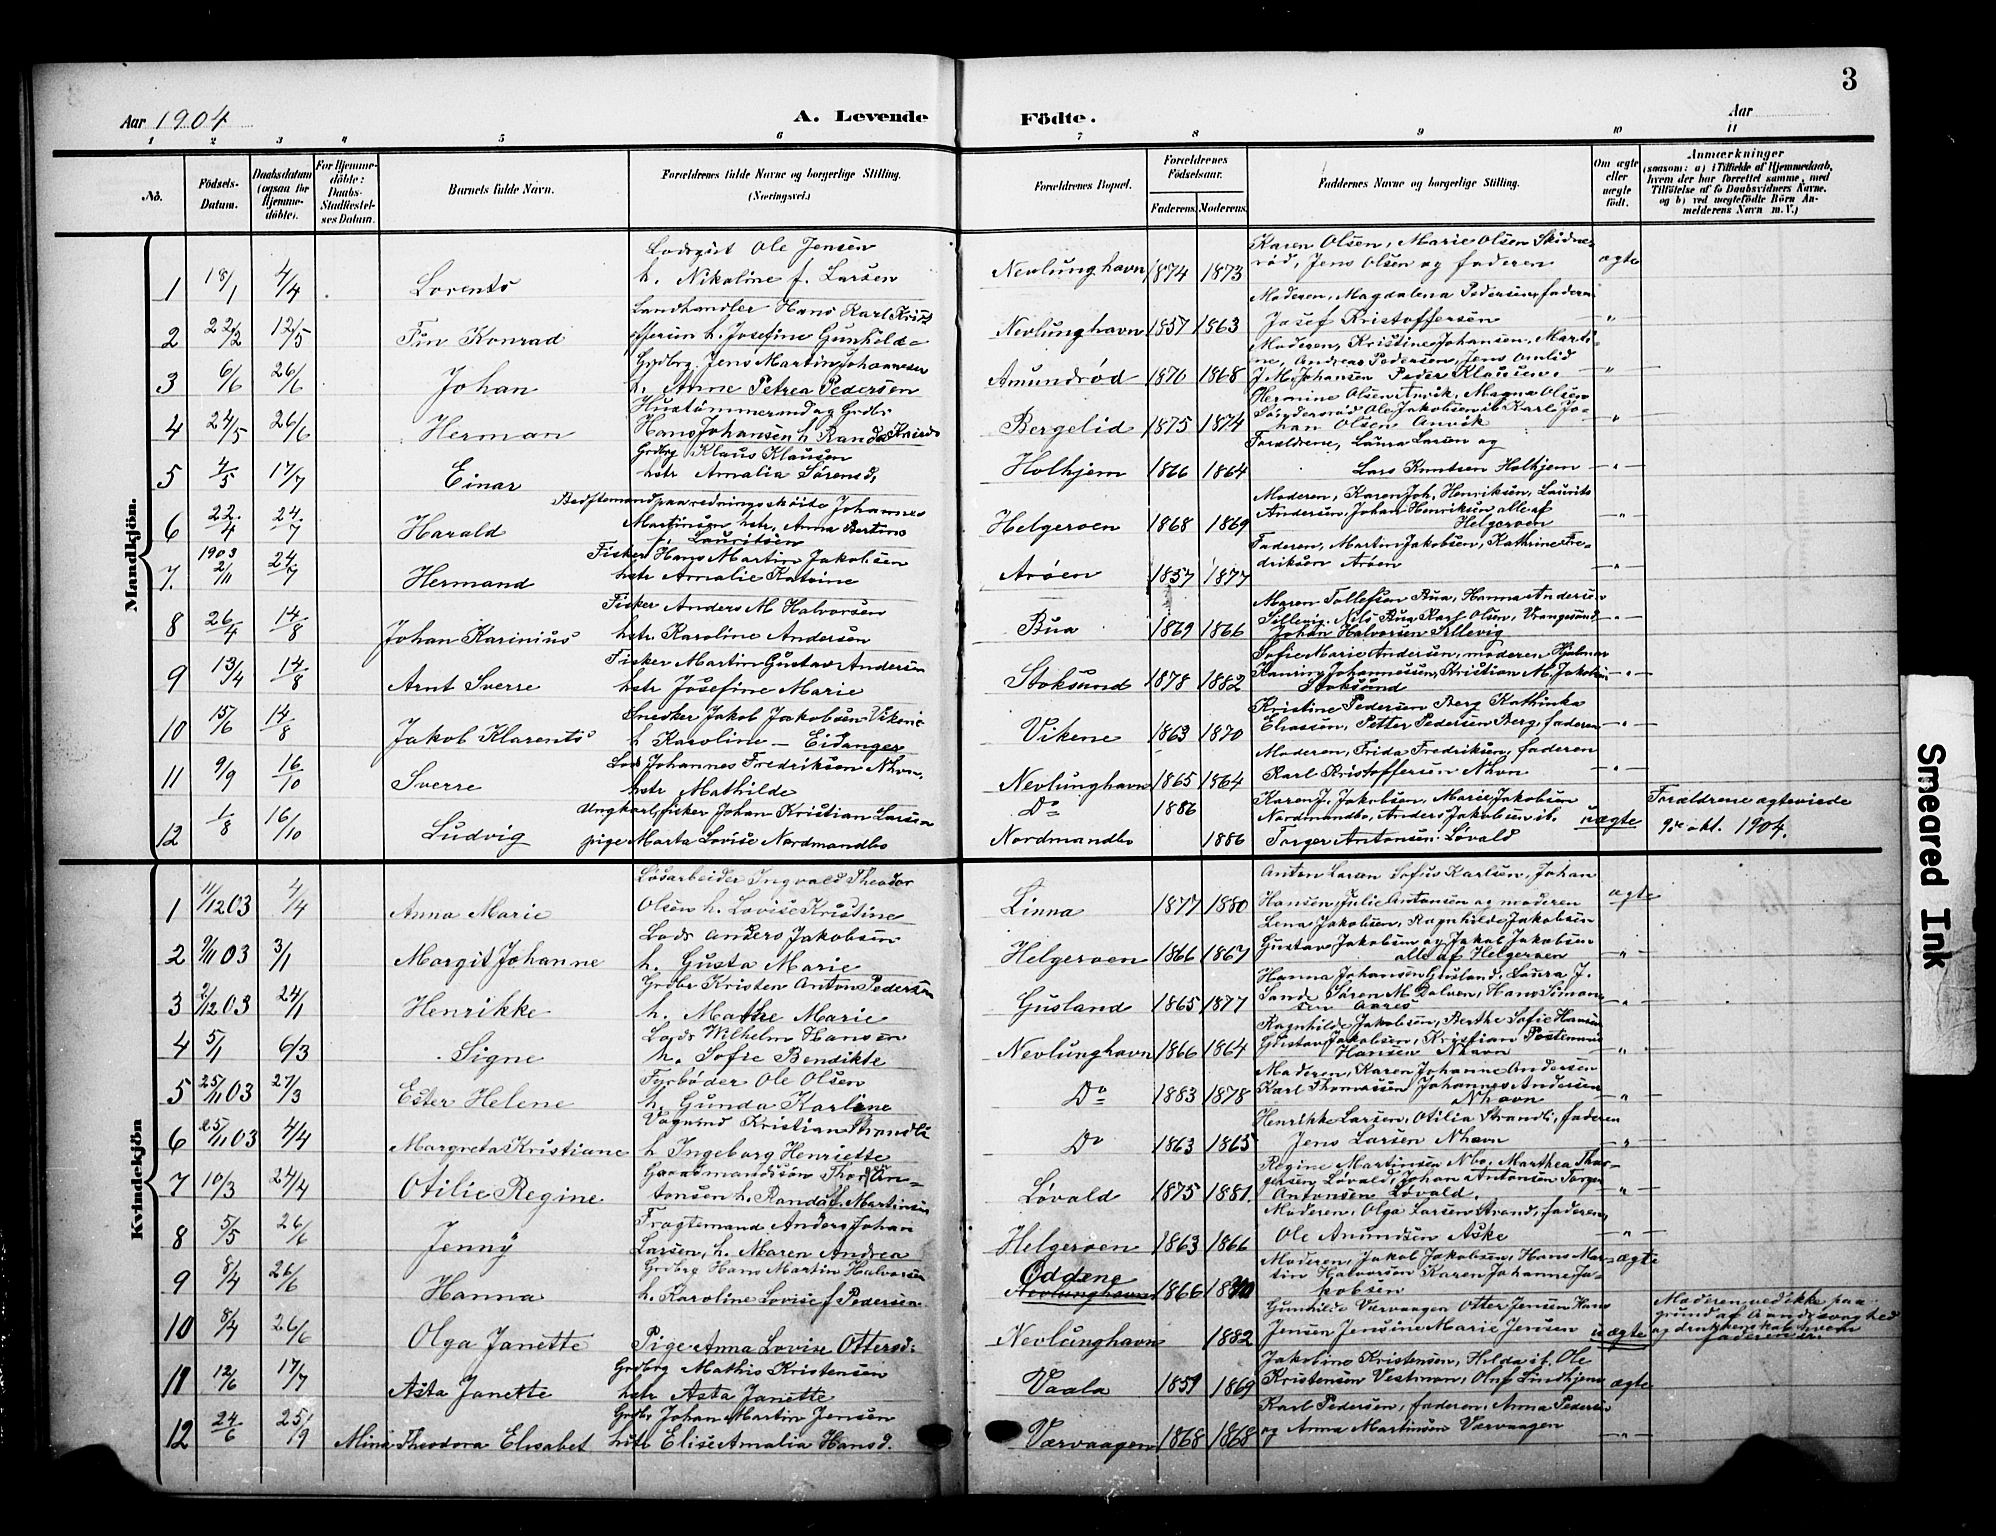 3
Aar 1904
A. Levende Födte.
Aar
1 2 3 4 5 6 7 8 9 10 11
No.
Födsels-Datum.
Daabsdatum (ogsaa for Hjemmedöbte).
For Hjemmedöbte: Daabs-Stadfæstelses Datum.
Barnets fulde Navn.
Forældrenes fulde Navne og borgerlige Stilling. (Næringsvei.)
Forældrenes Bopæl.
Forældrenes Födselsaar.
Faderens. Moderens.
Faddernes Navne og borgerlige Stilling.
Om ægte eller uægte födt.
Anmærkninger
(saasom: a) i Tilfælde af Hjemmedaab, hvem der har forrettet samme, med Tilföielse af to Daabsvidners Navne, og b) ved uægtefödte Börn Anmelderens Navn m. V.)
Mandkjön.
1 18/1 4/4 Lorents
Lodsgut Ole Jensen
h. Nikoline f. Larsen
Nevlunghavn 1874 1873
Karen Olsen, Marie Olsen Skidnæ-
rød, Jens Olsen og faderen
ægte
2 22/2 12/5 Fin Konrad
Landhandler Hans Karl Krist
offersen h. Josefine Gunhilde
Nevlunghavn 1857 1863
Moderen, Magdalena Pedersen, faderen
Josef Kristoffersen
-"-
3 6/6 26/6 Johan
Grdbrg. Jens Martin Johannesen
h. Anne Petrea Pedersen
Amundrød 1870 1868
Moderen, Kristine Johansen, Marti-
ne, Andreas Pedersen, Jens Amlid
J. M. Johansen Peder Klausen.
-"-
4 24/5 26/6 Herman
Hustømmermand og Grdbr
Hans Johansen h. Randa Knirds
Bergelid 1875 1874
Hermine Olsen Anvik, Magna Olsen
Sørgdersrød Ole Jakobsen ib. Karl Jo-
han Olsen Anvik
-"-
5 4/5 17/7 Einar
Grdbrg Klaus Klausen
hstr Amalia Sørensd,
Holhjem 1866 1864
Forældrene, Laura Larsen og
Lars Knutsen Holhjem
-"-
6 22/4 24/7 Harald
Bedstemand paa redningsskøite Johannes
Martinsen hstr. Anna Bertine
f. Lauritsen
Helgeroen 1868 1869
Moderen, Karen Joh. Henriksen, Laurits
Andersen, Johan Henriksen alle af
Helgeroen
-"-
7. 1903 2/11 24/7 Hermand
Fisker Hans Martin Jakobsen
hstr Amalie Katrine
Arøen 1857 1877
Faderen, Martin Jakobsen, Kathrine Fre-
driksen Arøen
-"-
8 26/4 14/8 Johan Karinius
Fisker Anders M Halvorsen
hstr. Karoline Andersen
Bua 1869 1866
Maren Tollefsen Bua, Hanna Andersen
Sillevig. Nils Bua Karl Olsen, Vrangesund
Johan Halvorsen Sillevig
-"-
9 13/4 14/8 Arnt Sverre
Fisker Martin Gustav Andersen
hstr Josefine Marie
Stoksund 1878 1882
Sofie Marie Andersen, moderen Hjalmar
Johannessen, Kristian M. Jakobsen
Stoksund
-"-
10 15/6 14/8 Jakob Klarents
Snedker Jakob Jakobsen Vikene
h Karoline - Eidanger
Vikene 1863 1870
Kristine Pedersen Berg Kathinka
Eliassen, Petter Pedersen Berg, faderen
-"-
11 9/9 16/10 Sverre
Lods Johannes Fredriksen Nhvn,
hstr Mathilde
Nevlunghavn 1865 1864
Moderen, Frida Fredriksen, faderen
Karl Kristoffersen Nhvn
-"-
12 1/8 16/10 Ludvig
Ungkarl, fisker Johan Kristian Larsen
pige Marta Lovise Nordmandbo
Do 1886
Nordmandbo 1886
Karen J. Jakobsen, Marie Jakobsen
Nordmandbo, Anders Jakobsen ib.
Torger Antonsen Løvald
uægte
Forældrene egteviede
9de okt. 1904.
Kvindekjön
1 11/12 03 4/4 Anna Marie
Løsarbeider Ingvald Theodor
Olsen h. Lovise Kristine
Linna 1877 1880
Anton Larsen Sofus Karlsen, Johan
Hansen, Julie Antonsen og moderen
ægte
2 9/11 03 3/1 Margit Johanne
Lods Anders Jakobsen
h. Gusta Marie
Helgeroen 1866 1867
Lena Jakobsen, Ragnhilde Jakobsen
Gustav Jakobsen og Jakob Jakobsen
alle af Helgeroen
-"-
3 2/12 03 24/1 Henrikke
Grdbr Kristen Anton Pedersen
h. Mathe Marie
Gusland 1865 1877
Hanna Johansen Gusland, Laura J.
Sande Søren M. Dolven, Hans Simon-
sen Aares
-"-
4 5/1 6/3 Signe
Lods Wilhelm Hansen
h. Sofie Bendikte
Nevlunghavn 1866 1864
Ragnhilde Jakobsen, Berthe Sofie Hansen
Gustav Jakobsen, Kristian Postmand
Hansen Nhavn
-"-
5 25/11 03 27/3 Ester Helene
Fyrbøder Ole Olsen
h. Gunda Karline
Do 1883 1878
Moderen, Karen Johanne Andersen
Karl Thomassen Johannes Andersen
Nhavn
-"-
6 25/11 03 4/4 Margreta Kristiane
Vognmd Kristian Strandli
h Ingeborg Henriette
Do 1863 1865
Henrikke Larsen, Otilia Strandli, faderen
Jens Larsen Nhavn
-"-
7 10/3 24/4 Otilie Regine
Gaardmandssøn Thor An-
tonsen h. Randa f. Martinsen
Løvald 1875 1881.
Regine Martinsen Nbo, Marthea Thor-
gersen Løvald, Johan Antonsen Torger
Antonsen Løvald.
-"-
8 5/5 26/6 Jenny
Fragtemand Anders Johan
Larsen, h. Maren Andrea
Helgeroen 1863 1866
Moderen, Olga Larsen Strand, faderen,
Ole Amundsen Aske
-"-
9 8/4 26/6 Hanna
Grdbrg Hans Martin Halvorsen
h. Karoline Lovise f Pedersen
Oddene
Nevlunghavn 1866 1870
Moderen, Jakob Jakobsen, Hans Mar-
tin Halvorsen Karen Johanne Ja-
kobsen
ægte
10 8/4 26/6 Olga Janette
Pige Anna Lovise Ottersd.
Nevlunghavn 1882
Gunhilde Værvaagen Otter Jensen Hans
Jensen Jensine Marie Jensen
uægte
Moderen ved ikke paa
grund af Aandssvaghed
og drukkenskab hvem
faderen er.
11 12/6 17/7 Asta Janette
Grdbrg Mathis Kristensen
hstr Asta Janette
Vaala 1859 1869
Jakobine Kristensen, Hilda ib. Ole
Kristensen Vestman, Oluf Lindhjem
ægte
12 24/6 25/9 Mina Theodora Elisabet
Grdbr Johan Martin Jensen
hstr Elise Amalia Hansd.
Værvaagen 1868 1868
Karl Pedersen, faderen, Anna Pedersen
og Anna Martinsen Værvaagen
-"-
Smeared Ink